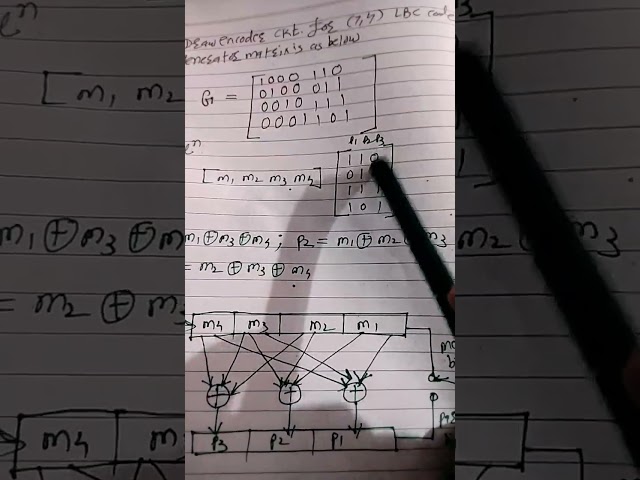 Draw encoder ckt. for (7,4) LBC code
generator matrix is as below
G = [1000 110
0100 011
0010 111
0001 101]
P1 P2 P3
[m1 m2 m3 m4] [1 1 0
0 1
1 1 1
1 0 1]
m1 ⊕ m3 ⊕ m4 ; P2 = m1 ⊕ m2 ⊕ m3
= m2 ⊕ m3 ⊕ m4
m4 m3 m2 m1
⊕ ⊕ ⊕
P3 P2 P1